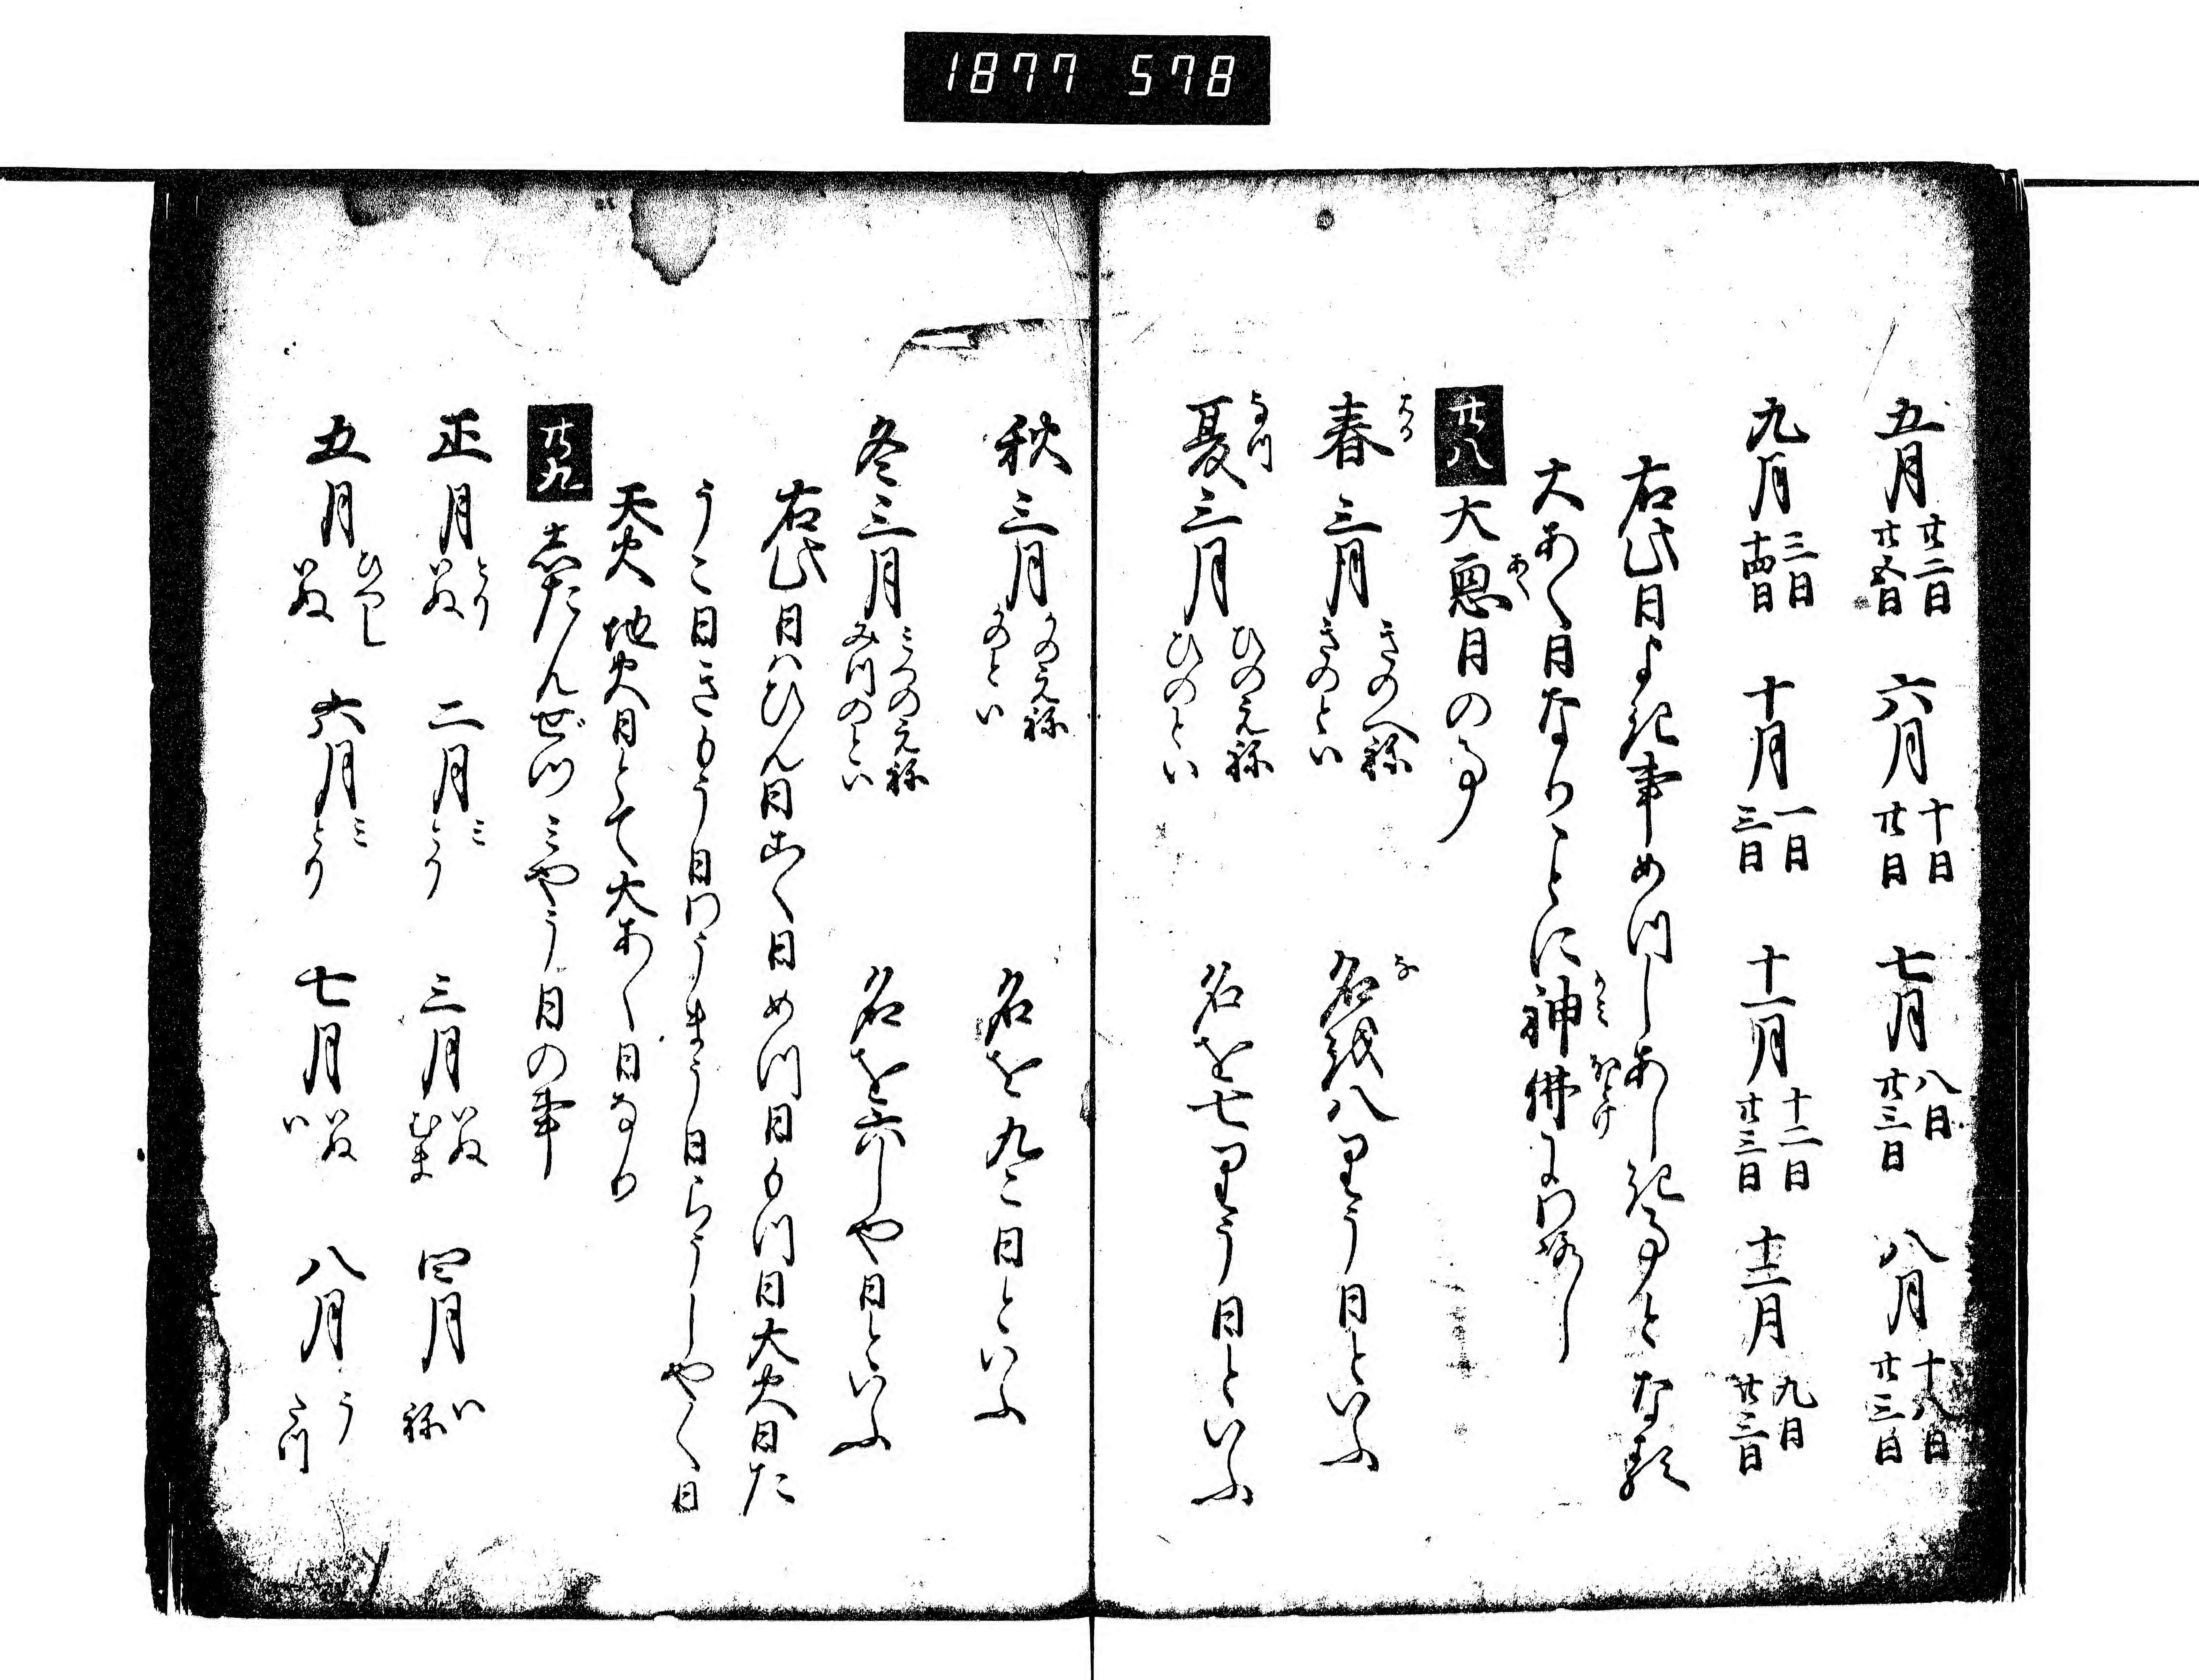 1877 578
五月 廿二日 廿五日 六月 十日 廿日 七月 八日 廿三日 八月 十八日 廿三日
九月 三日 十四日 十月 一日 三日 十一月 十二日 廿三日 十二月 九日 廿三日
右此日よ記事めつしあし記事となる
大あく日なりことに神佛
廿八 大悪日の事
春三月 きのへね きのとい 名越八里う日といふ
夏三月 ひのえね ひのとい 名を七里う日といふ
秋三月 かのえね かのとい 名を九こ日といふ
冬三月 みつのえね みつのとい 名を六しや日といふ
右此日ハひん日あく日めつ日もつ日大火日た
うこ日きもう日わうまう日らうしやく日
天火地火日とて大あく日なり
廿九 志たんぜつみやう日の事
正月 とり いぬ 二月 ミ とり 三月 いぬ むま 四月 い ね
五月 ひつし いぬ 六月 ミ とり 七月 いぬ い 八月 う たつ